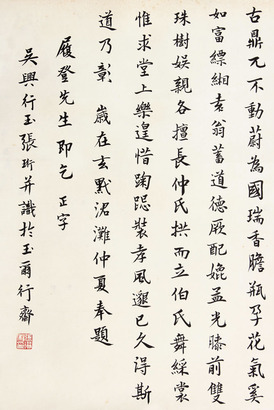 古鼎兀不蔚為國瑞香膽瓶孕花氣奚
如富縹緗袁翁蓄道德厥配媲孟光膝前雙
珠樹娛親各擅長仲氏拱而立伯氏舞綵裳
惟求堂上樂遑惜踘跽裝孝風邈已久得斯
道乃彰 歲在玄黓涒灘仲夏奉題
履登先生即乞 正字
吳興行玉張珩并識於玉爾行齋